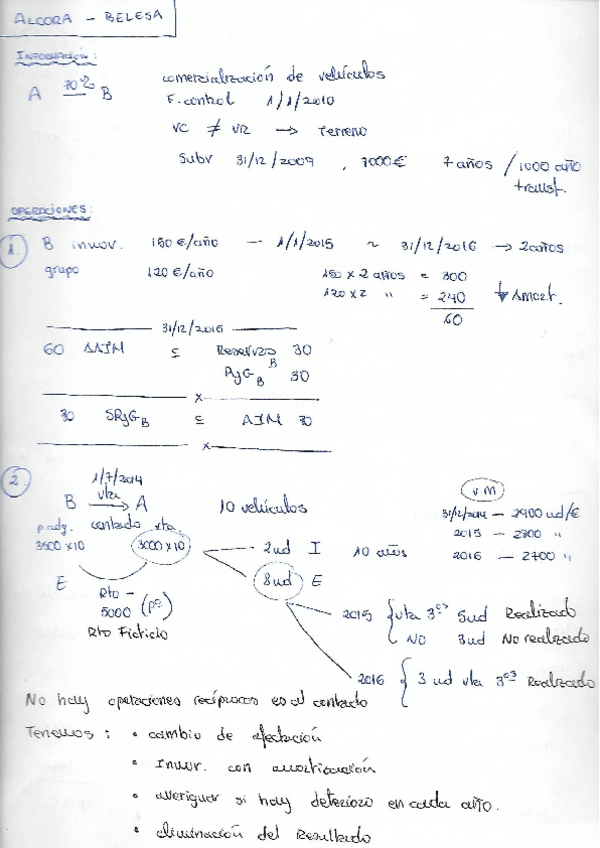 ALCORA - BELESA
INFORMACIÓN:
A 70% B comercialización de vehículos
F. control 1/1/2010
VC ≠ VR → Terreno
Subv 31/12/2009, 7000€ 7 años / 1000 año
transf.
OPERACIONES:
1. B inmov. 150 €/año — 1/1/2015 ~ 31/12/2016 → 2 años
grupo 120 €/año 150 x 2 años = 300
120 x 2 " = 240 ↓ Amort.
60
31/12/2016
60 AAIM a Reservas B 30
PyG B 30
x
30 SPyG B a AIM 30
x
2. 1/7/2014
B vta → A 10 vehículos
p. adq. contado vta.
3500 x 10 3000 x 10
VM
31/12/2014 — 2900 ud/€
2015 — 2800 "
2016 — 2700 "
2 ud I 10 años
8 ud E
E Rto -
5000 (pª)
Rto Ficticio
2015 { vta 3ºs 5 ud Realizado
No 3 ud No realizado
2016 { 3 ud vta 3ºs Realizado
No hay operaciones recíprocas es al contado
Tenemos: • cambio de afectación
• Inmov. con amortización
• averiguar si hay deterioro en cada año.
• eliminación del Resultado